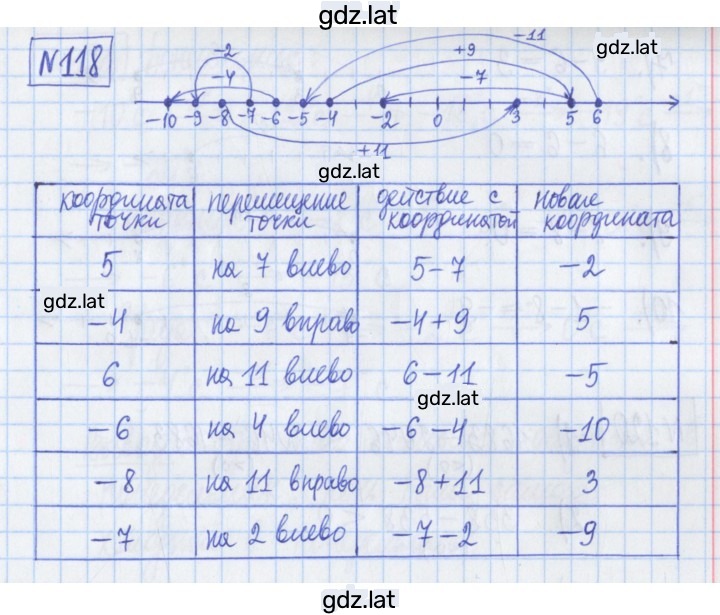 gdz.lat
N118
-2
-4
-11
+9
-7
gdz.lat
-10 -9 -8 -7 -6 -5 -4 -2 0 3 5 6
+11
gdz.lat
координата точки | перемещение точки | действие с координатой | новая координата
5 | на 7 влево | 5-7 | -2
gdz.lat
-4 | на 9 вправо | -4+9 | 5
6 | на 11 влево | 6-11 | -5
gdz.lat
-6 | на 4 влево | -6-4 | -10
-8 | на 11 вправо | -8+11 | 3
-7 | на 2 влево | -7-2 | -9
gdz.lat